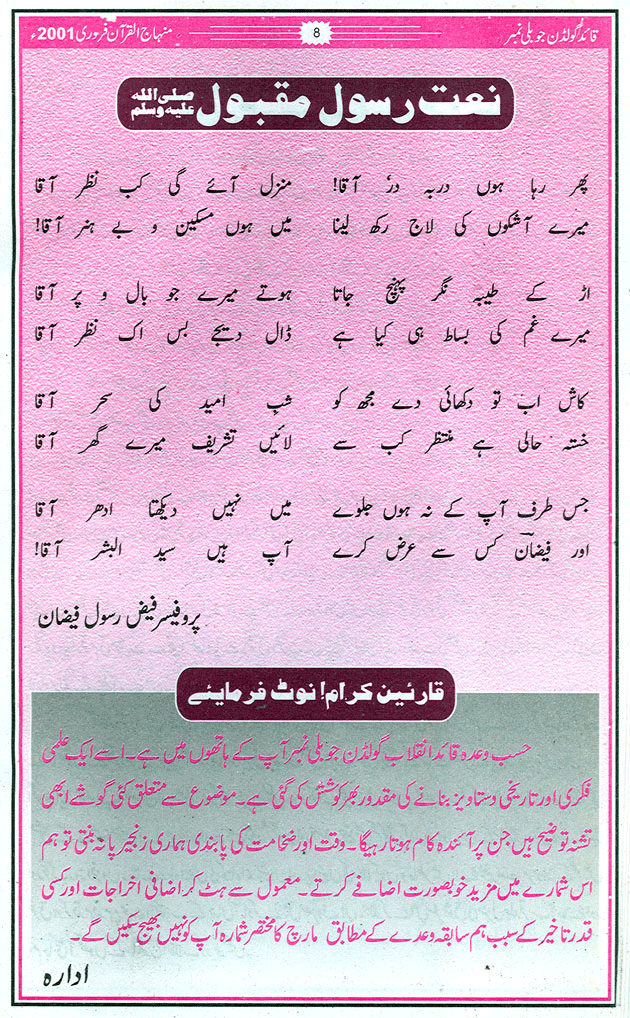 قائد گولڈن جوبلی نمبر 8 منہاج القرآن فروری 2001ء
نعت رسول مقبول صلی اللہ علیہ وسلم
پھر رہا ہوں دربہ در آقا! منزل آئے گی کب نظر آقا
میرے آشکوں کی لاج رکھ لینا میں ہوں مسکین و بے ہنر آقا!
اڑ کے طیبہ نگر پہنچ جاتا ہوتے میرے جو بال و پر آقا
میرے غم کی بساط ہی کیا ہے ڈال دیجے بس اک نظر آقا
کاش اب تو دکھائی دے مجھ کو شب امید کی سحر آقا
خستہ حالی ہے منتظر کب سے لائیں تشریف میرے گھر آقا
جس طرف آپ کے نہ ہوں جلوے میں نہیں دیکھتا ادھر آقا
اور فیضان کس سے عرض کرے آپ ہیں سید البشر آقا!
پروفیسر فیض رسول فیضان
قارئین کرام! نوٹ فرمایئے
حسب وعدہ قائد انقلاب گولڈن جوبلی نمبر آپ کے ہاتھوں میں ہے۔ اسے ایک علمی
فکری اور تاریخی دستاویز بنانے کی مقدور بھر کوشش کی گئی ہے۔ موضوع سے متعلق کئی گوشے ابھی
تشنہ توضیح ہیں جن پر آئندہ کام ہوتا رہیگا۔ وقت اور ضخامت کی پابندی ہماری زنجیر پا نہ بنتی تو ہم
اس شمارے میں مزید خوبصورت اضافے کرتے۔ معمول سے ہٹ کر اضافی اخراجات اور کسی
قدر تاخیر کے سبب ہم سابقہ وعدے کے مطابق مارچ کا مختصر شمارہ آپ کو نہیں بھیج سکیں گے۔
ادارہ